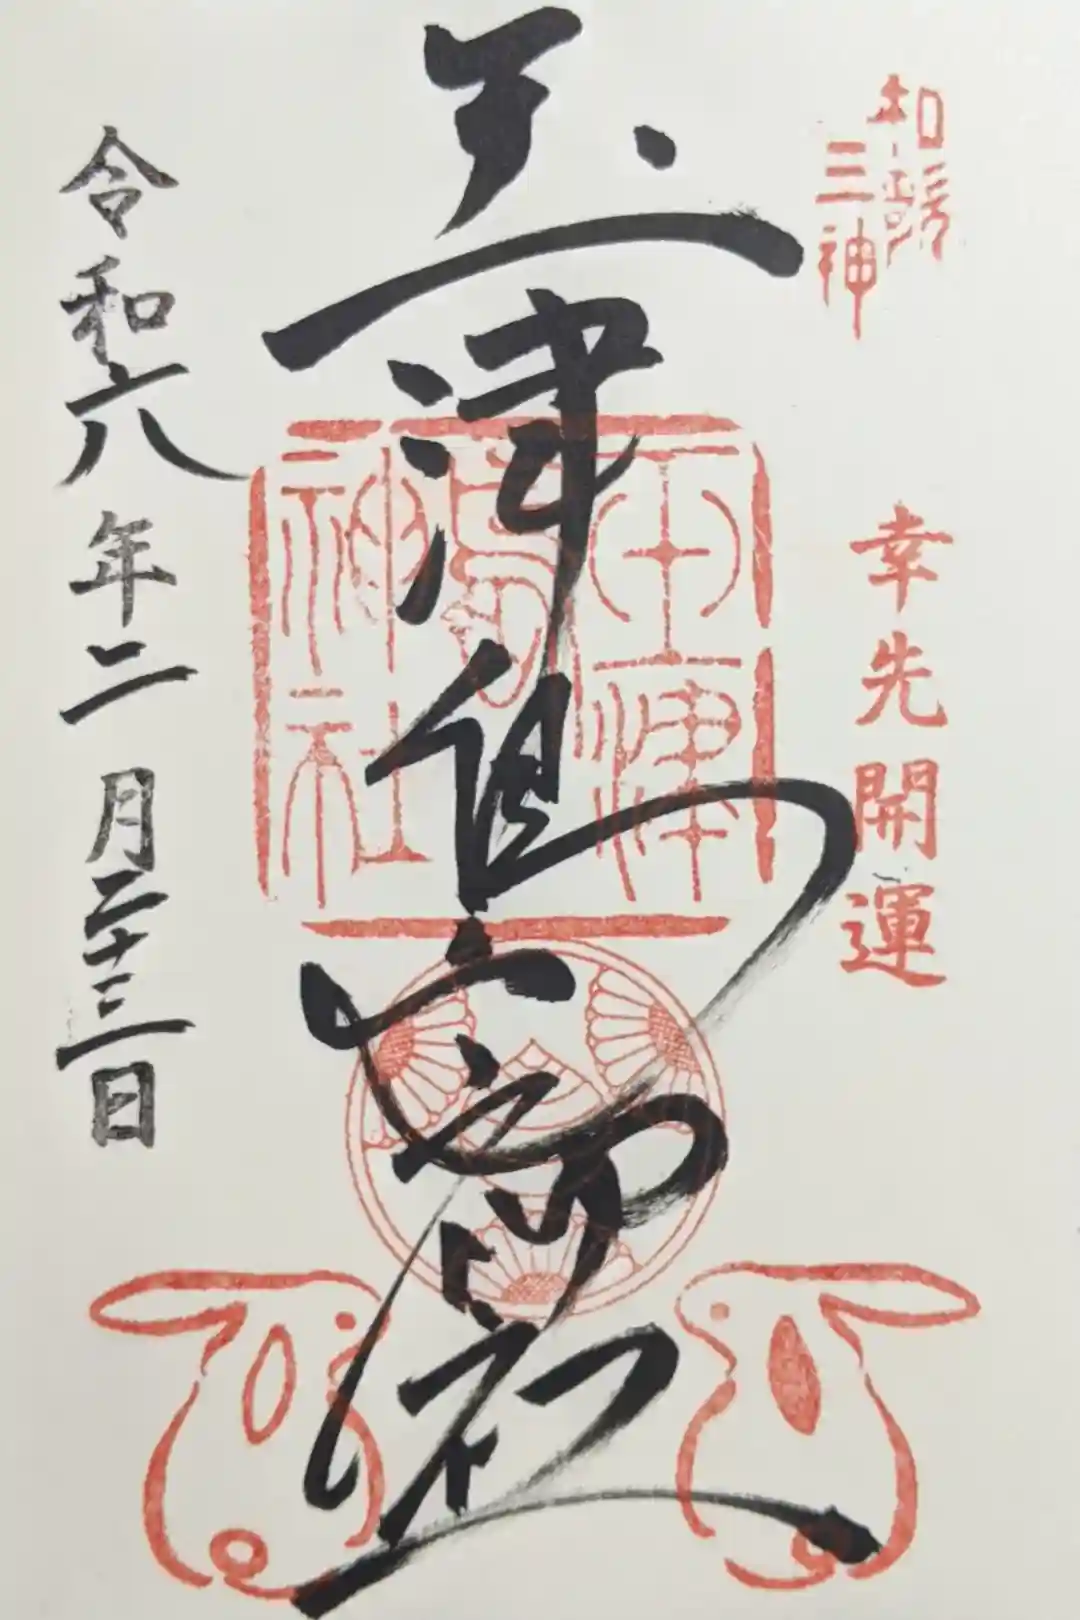 和歌
三神
幸先開運
玉津島社
玉津
島
神社
令和六年二月二十三日